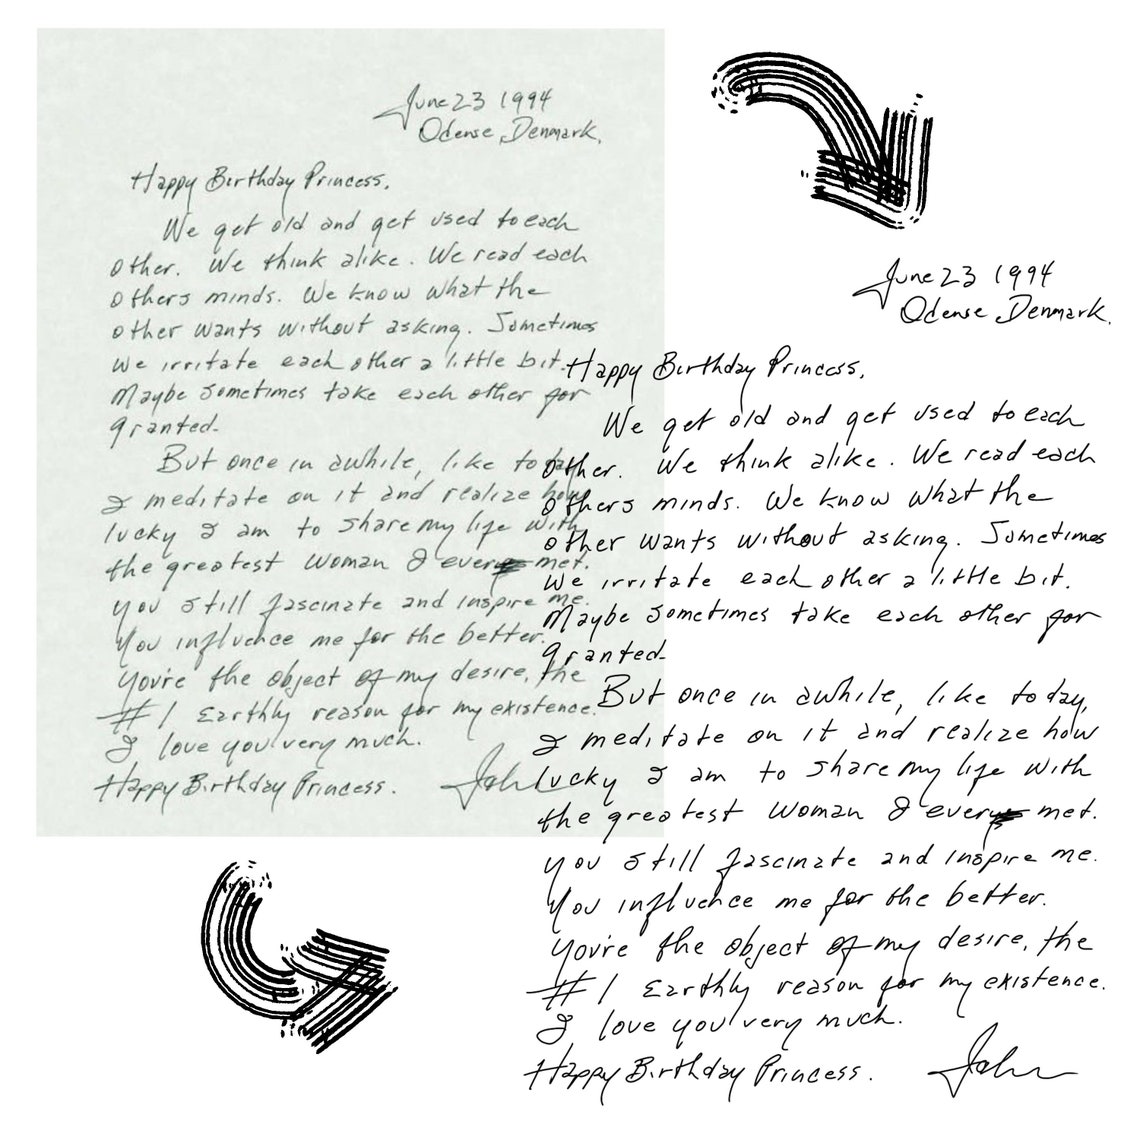 June 23 1994
Odense, Denmark.
Happy Birthday Princess,
We get old and get used to each
other. We think alike. We read each
others minds. We know what the
other wants without asking. Sometimes
we irritate each other a little bit.
Maybe sometimes take each other for
granted.
But once in awhile, like today,
I meditate on it and realize how
lucky I am to share my life with
the greatest woman I ever met.
You still fascinate and inspire me.
You influence me for the better.
You're the object of my desire, the
#1 Earthly reason for my existence.
I love you very much.
Happy Birthday Princess.
John
June 23 1994
Odense Denmark.
Happy Birthday Princess,
We get old and get used to each
other. We think alike. We read each
others minds. We know what the
other wants without asking. Sometimes
we irritate each other a little bit.
Maybe sometimes take each other for
granted.
But once in awhile, like today,
I meditate on it and realize how
lucky I am to share my life with
the greatest woman I ever met.
You still fascinate and inspire me.
You influence me for the better.
You're the object of my desire, the
#1 Earthly reason for my existence.
I love you very much.
Happy Birthday Princess.
John